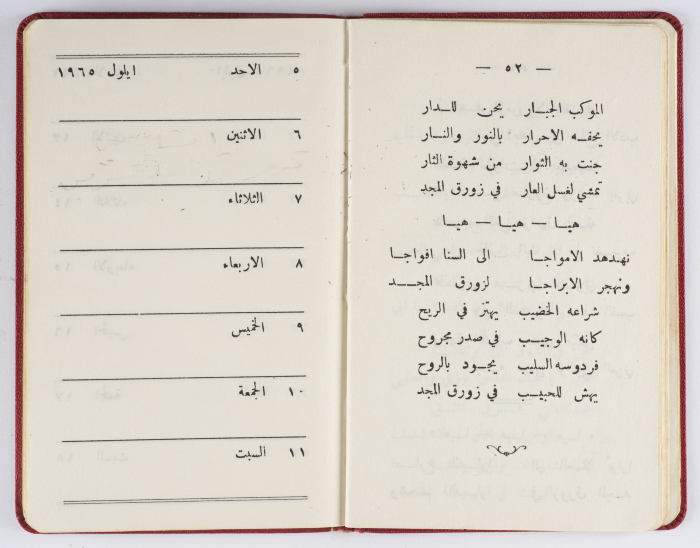 — ٥٢ —
الموكب الجبـار يحن للـدار
يحفـه الاحرار بالنور والنـار
جنت به الثوار من شهوة الثار
تمشي لغسل العار في زورق المجد
هيـا — هيـا — هيـا
نهدهد الامواجـا الى السنا افواجـا
ونهجر الابراجـا لزورق المجـد
شراعه الخضيب يهتز في الريح
كانه الوجيـب في صدر مجروح
فردوسه السليب يجـود بالروح
يهش للحبيـب في زورق المجد
٥ الاحد ايلول ١٩٦٥
٦ الاثنين
٧ الثلاثاء
٨ الاربعاء
٩ الخميس
١٠ الجمعة
١١ السبت